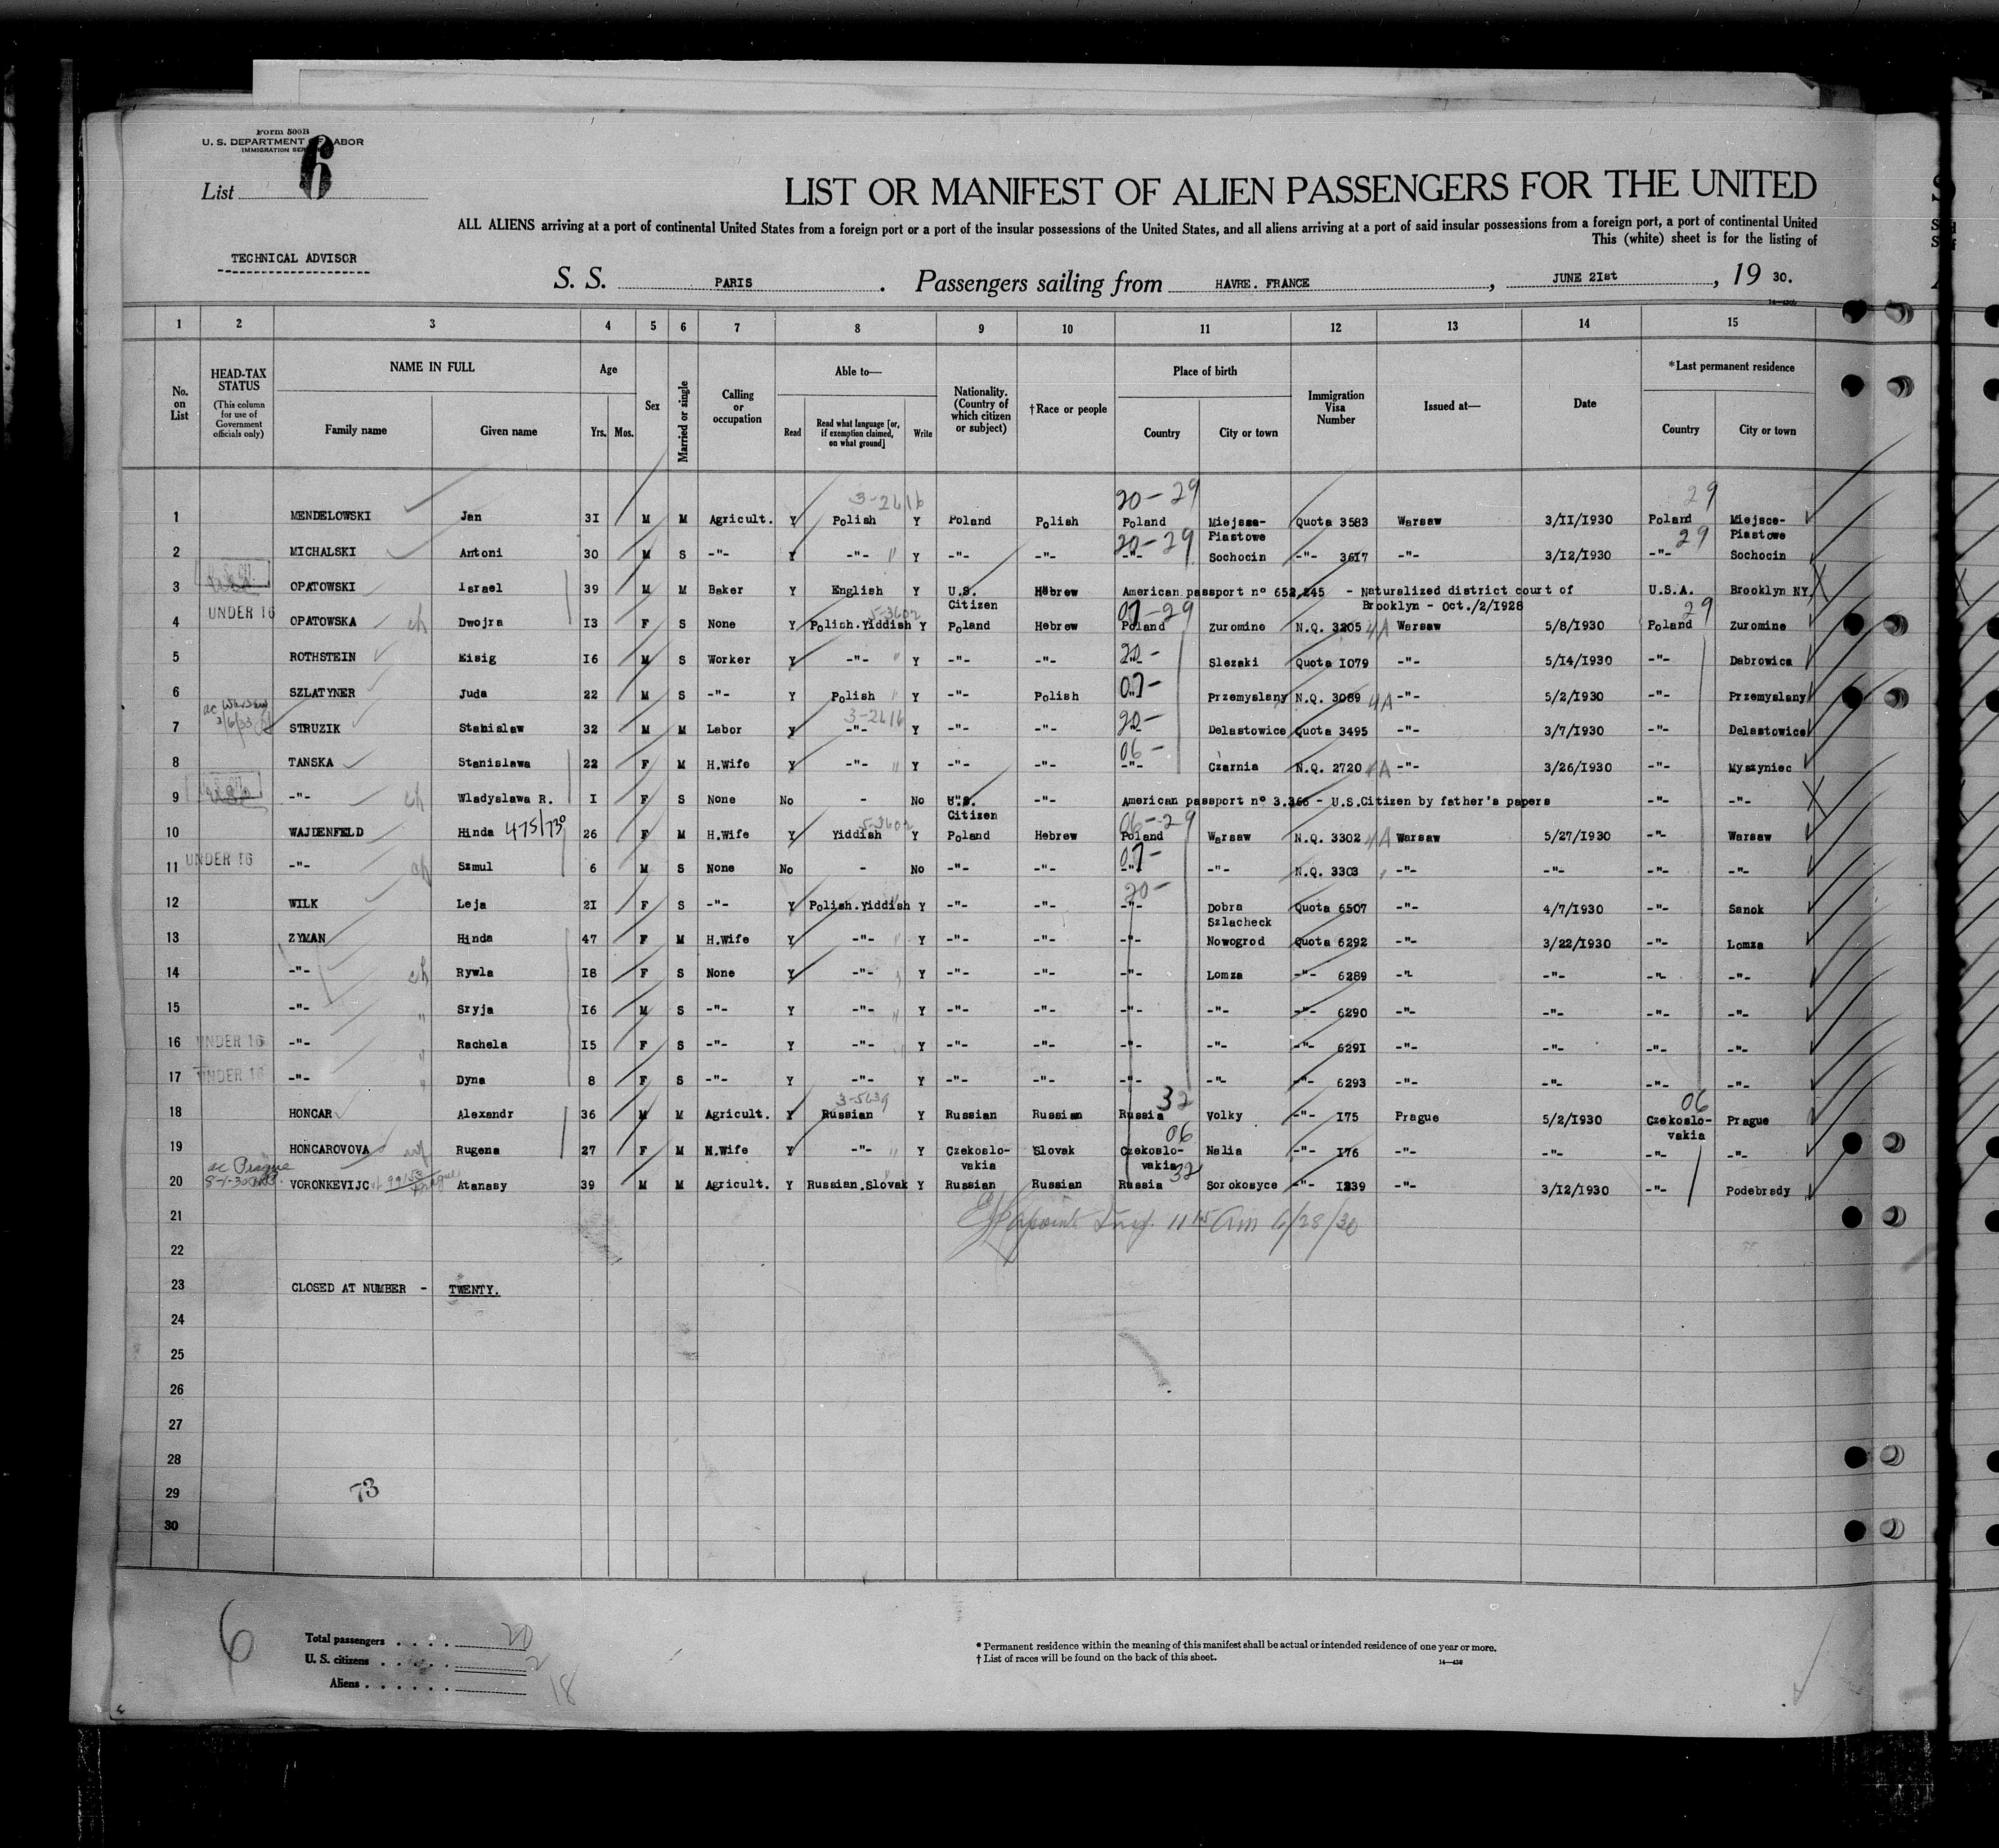 Form 500B
U. S. DEPARTMENT OF LABOR
IMMIGRATION SER
List 6
LIST OR MANIFEST OF ALIEN PASSENGERS FOR THE UNITED
ALL ALIENS arriving at a port of continental United States from a foreign port or a port of the insular possessions of the United States, and all aliens arriving at a port of said insular possessions from a foreign port, a port of continental United
This (white) sheet is for the listing of
TECHNICAL ADVISOR
S. S. PARIS . Passengers sailing from HAVRE. FRANCE , JUNE 2Ist , 19 30.
1 2 3 4 5 6 7 8 9 10 11 12 13 14 15
No. on List
HEAD-TAX STATUS (This column for use of Government officials only)
NAME IN FULL
Family name Given name
Age
Yrs. Mos.
Sex
Married or single
Calling or occupation
Able to—
Read Read what language [or, if exemption claimed, on what ground] Write
Nationality. (Country of which citizen or subject)
†Race or people
Place of birth
Country City or town
Immigration Visa Number
Issued at—
Date
*Last permanent residence
Country City or town
3-2416 20-29 29
1 MENDELOWSKI Jan 3I M M Agricult. Y Polish Y Poland Polish Poland Miejsce- Quota 3583 Warsaw 3/II/1930 Poland Miejsce-
Piastowe Piastowe
20-29 29
2 MICHALSKI Antoni 30 M S -"- Y -"- Y -"- -"- -"- Sochocin -"- 36I7 -"- 3/12/1930 -"- Sochocin
3 OPATOWSKI Israel 39 M M Baker Y English Y U.S. Hebrew American passport n° 652,245 - Naturalized district court of U.S.A. Brooklyn NY
Citizen Brooklyn - Oct./2/1928
UNDER 16 5-3602 07-29 29
4 OPATOWSKA ch Dwojra I3 F S None Y Polish.Yiddish Y Poland Hebrew Poland Zuromine N.Q. 3205 4A Warsaw 5/8/1930 Poland Zuromine
20-
5 ROTHSTEIN Eisig I6 M S Worker Y -"- Y -"- -"- -"- Slezaki Quota I079 -"- 5/14/1930 -"- Dabrowica
07-
6 SZLATYNER Juda 22 M S -"- Y Polish Y -"- Polish -"- Przemyslany N.Q. 3089 4A -"- 5/2/1930 -"- Przemyslany
ac Warsaw 3/6/33 3-2416 20-
7 STRUZIK Stanislaw 32 M M Labor Y -"- Y -"- -"- -"- Delastowice Quota 3495 -"- 3/7/1930 -"- Delastowice
06-
8 TANSKA Stanislawa 22 F M H.Wife Y -"- Y -"- -"- -"- Czarnia N.Q. 2720 4A -"- 3/26/1930 -"- Myszyniec
9 -"- ch Wladyslawa R. I F S None No - No U.S. -"- American passport n° 3.366 - U.S.Citizen by father's papers -"- -"-
Citizen
5-3602 06-29
10 WAJDENFELD Hinda 475/730 26 F M H.Wife Y Yiddish Y Poland Hebrew Poland Warsaw N.Q. 3302 4A Warsaw 5/27/1930 -"- Warsaw
UNDER 16 07-
11 -"- ch Szmul 6 M S None No - No -"- -"- -"- -"- N.Q. 3303 -"- -"- -"- -"-
20-
12 WILK Leja 2I F S -"- Y Polish.Yiddish Y -"- -"- -"- Dobra Quota 6507 -"- 4/7/1930 -"- Sanok
Szlacheck
13 ZYMAN Hinda 47 F M H.Wife Y -"- Y -"- -"- -"- Nowogrod Quota 6292 -"- 3/22/1930 -"- Lomza
14 -"- ch Rywla I8 F S None Y -"- Y -"- -"- -"- Lomza -"- 6289 -"- -"- -"- -"-
15 -"- " Sryja I6 M S -"- Y -"- Y -"- -"- -"- -"- -"- 6290 -"- -"- -"- -"-
16 UNDER 16 -"- " Rachela I5 F S -"- Y -"- Y -"- -"- -"- -"- -"- 629I -"- -"- -"- -"-
17 UNDER 16 -"- " Dyna 8 F S -"- Y -"- Y -"- -"- -"- -"- -"- 6293 -"- -"- -"- -"-
3-5639 32 06
18 HONCAR Alexandr 36 M M Agricult. Y Russian Y Russian Russian Russia Volky -"- I75 Prague 5/2/1930 Czekoslo- Prague
vakia
06
19 HONCAROVOVA wf Rugena 27 F M H.Wife Y -"- Y Czekoslo- Slovak Czekoslo- Nalia -"- I76 -"- -"- -"- -"-
vakia vakia
ac Prague 32
20 VORONKEVIJC Atanasy 39 M M Agricult. Y Russian.Slovak Y Russian Russian Russia Sorokosyce -"- I239 -"- 3/12/1930 -"- Podebrady
21 Insp. 11 15 Am 6/28/30
22
23 CLOSED AT NUMBER - TWENTY.
24
25
26
27
28
29 73
30
6
Total passengers . . . . 20
U. S. citizens . . . . . 2
Aliens . . . . . . 18
* Permanent residence within the meaning of this manifest shall be actual or intended residence of one year or more.
† List of races will be found on the back of this sheet.